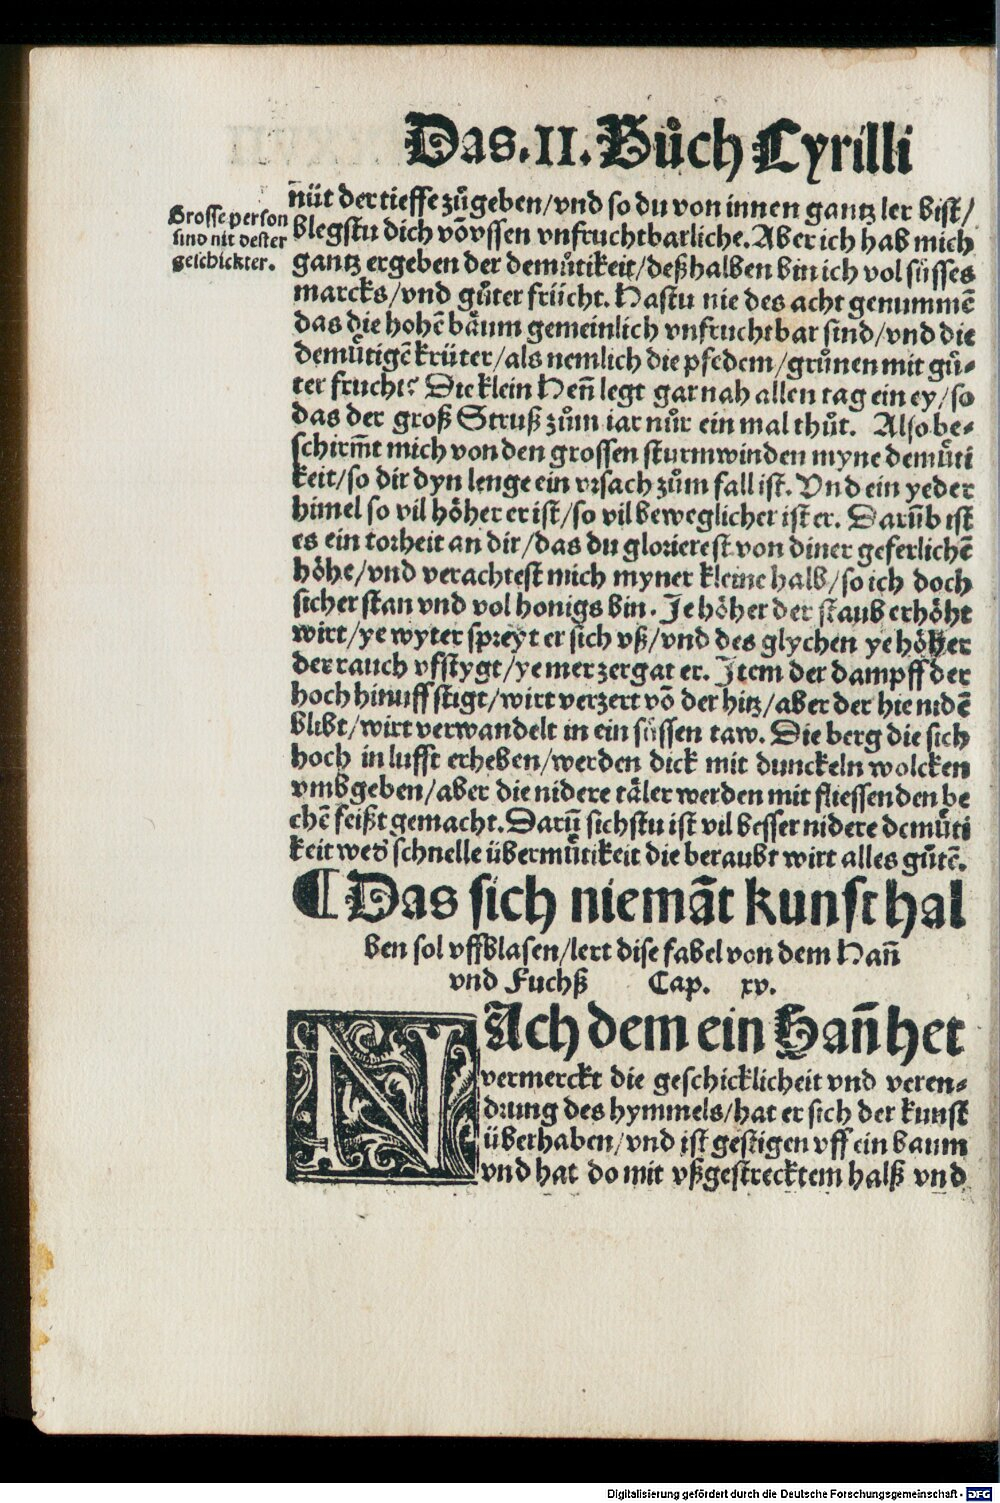 Das.II.Bůch Cyrilli
Grosse person
sind nit dester
geschickter.
nüt der tieffe zůgeben/vnd so du von innen gantz ler bist/
blegstu dich võvssen vnfruchtbarliche. Aber ich hab mich
gantz ergeben der demůtikeit/deßhalben bin ich vol süsses
marcks/vnd gůter frücht. Hastu nie des acht genummẽ
das die hohẽ bäum gemeinlich vnfruchtbar sind/vnd die
demůtigẽ krüter/als nemlich die pfedem/grůnen mit gů-
ter frucht? Die klein Heñ legt gar nah allen tag ein ey/so
das der groß Struß zům iar nůr ein mal thůt. Also be-
schirm̃t mich von den grossen sturmwinden myne demůti
keit/so dir dyn lenge ein vrsach zům fall ist. Vnd ein yeder
himel so vil höher er ist/so vil beweglicher ist er. Darũb ist
es ein torheit an dir/das du glorierest von diner geferlichẽ
höhe/vnd verachtest mich myner kleine halb/so ich doch
sicher stan vnd vol honigs bin. Je höher der staub erhöht
wirt/ye wyter spreyt er sich vß/vnd des glychen ye höher
der rauch vfstygt/ye mer zergat er. Item der dampff der
hoch hinuff stigt/wirt verzert võ der hitz/aber der hie nidẽ
blibt/wirt verwandelt in ein süssen taw. Die berg die sich
hoch in lufft erheben/werden dick mit dunckeln wolcken
vmbgeben/aber die nidere täler werden mit fliessenden be
chẽ feißt gemacht. Darũ sichstu ist vil besser nidere demůti
keit wed' schnelle übermůtikeit die beraubt wirt alles gůtẽ.
¶ Das sich niemãt kunst hal
ben sol vffblasen/lert dise fabel von dem Hañ
vnd Fuchß Cap. xv.
NAch dem ein Hañ het
vermerckt die geschicklicheit vnd veren-
drung des hymmels/hat er sich der kunst
überhaben/vnd ist gestigen vff ein baum
vnd hat do mit vßgestrecktem halß vnd
Digitalisierung gefördert durch die Deutsche Forschungsgemeinschaft - DFG